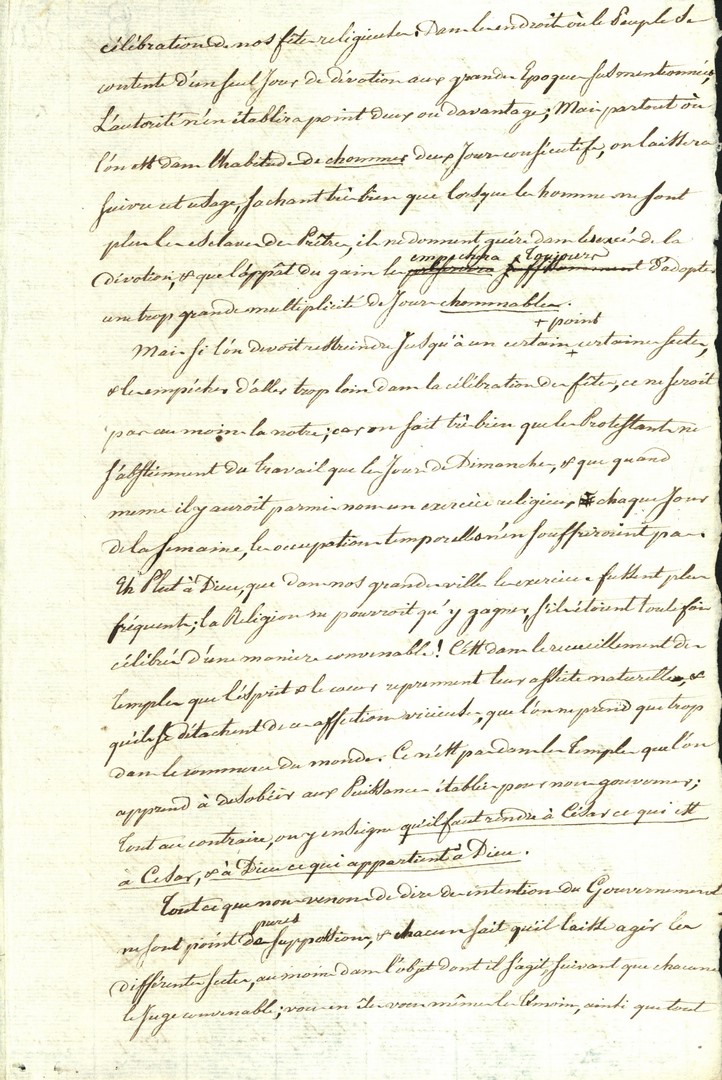 célébration de nos fêtes religieuses. Dans les endroits où le Peuple se
contente d'un seul Jour de dévotion aux grandes Epoques susmentionnées,
L'autorité n'en établira point deux ou davantage; Mais partout où
l'on est dans l'habitude de chommer deux Jours consécutifs, on laissera
suivre cet usage, sachant très bien que lorsque les hommes ne sont
plus les esclaves des Prêtres, ils ne donnent guère dans les excés de la
empechera toujours
dévotion, & que l'appât du gain les suffisamment d'adopter
une trop grande multiplicité de Jours chommables.
+ point
Mais si l'on devoit restreindre Jusqu'à un certain + certaines sectes,
& les empêcher d'aller trop loin dans la célébration des fêtes, ce ne seroit
pas au moins la notre; car on sait très bien que les Protestants ne
s'abstiennent du travail que les Jours de Dimanches, & que quand
meme il y auroit parmi nous un exercice religieux chaque Jour
de la semaine, les occupations temporelles n'en souffriroient pas.
Eh Plut à Dieu, que dans nos grandes villes les exercices fussent plus
fréquents; la Religion ne pourroit qu'y gagner, s'ils étoient toute fois
célébrés d'une maniere convenable! C'est dans le recueillement des
Temples que l'esprit & le coeur reprennent leur assiéte naturelle, &
qu'ils se détachent de ces affections vicieuses, que l'on ne prend que trop
dans le commerce du monde. Ce n'est pas dans les Temples que l'on
apprend à désobéir aux Puissances établies pour nous gouverner;
Tout au contraire, on y enseigne qu'il faut rendre à César ce qui est
à Cesar, & à Dieu ce qui appartient à Dieu.
Tout ce que nous venons de dire des intentions du Gouvernement
pures
ne sont point de suppositions, & chacun sait qu'il laisse agir les
différentes sectes, au moins dans l'objet dont il s'agit, suivant que chacune
le Juge convenable; vous en êtes vous même les témoins, ainsi que tout